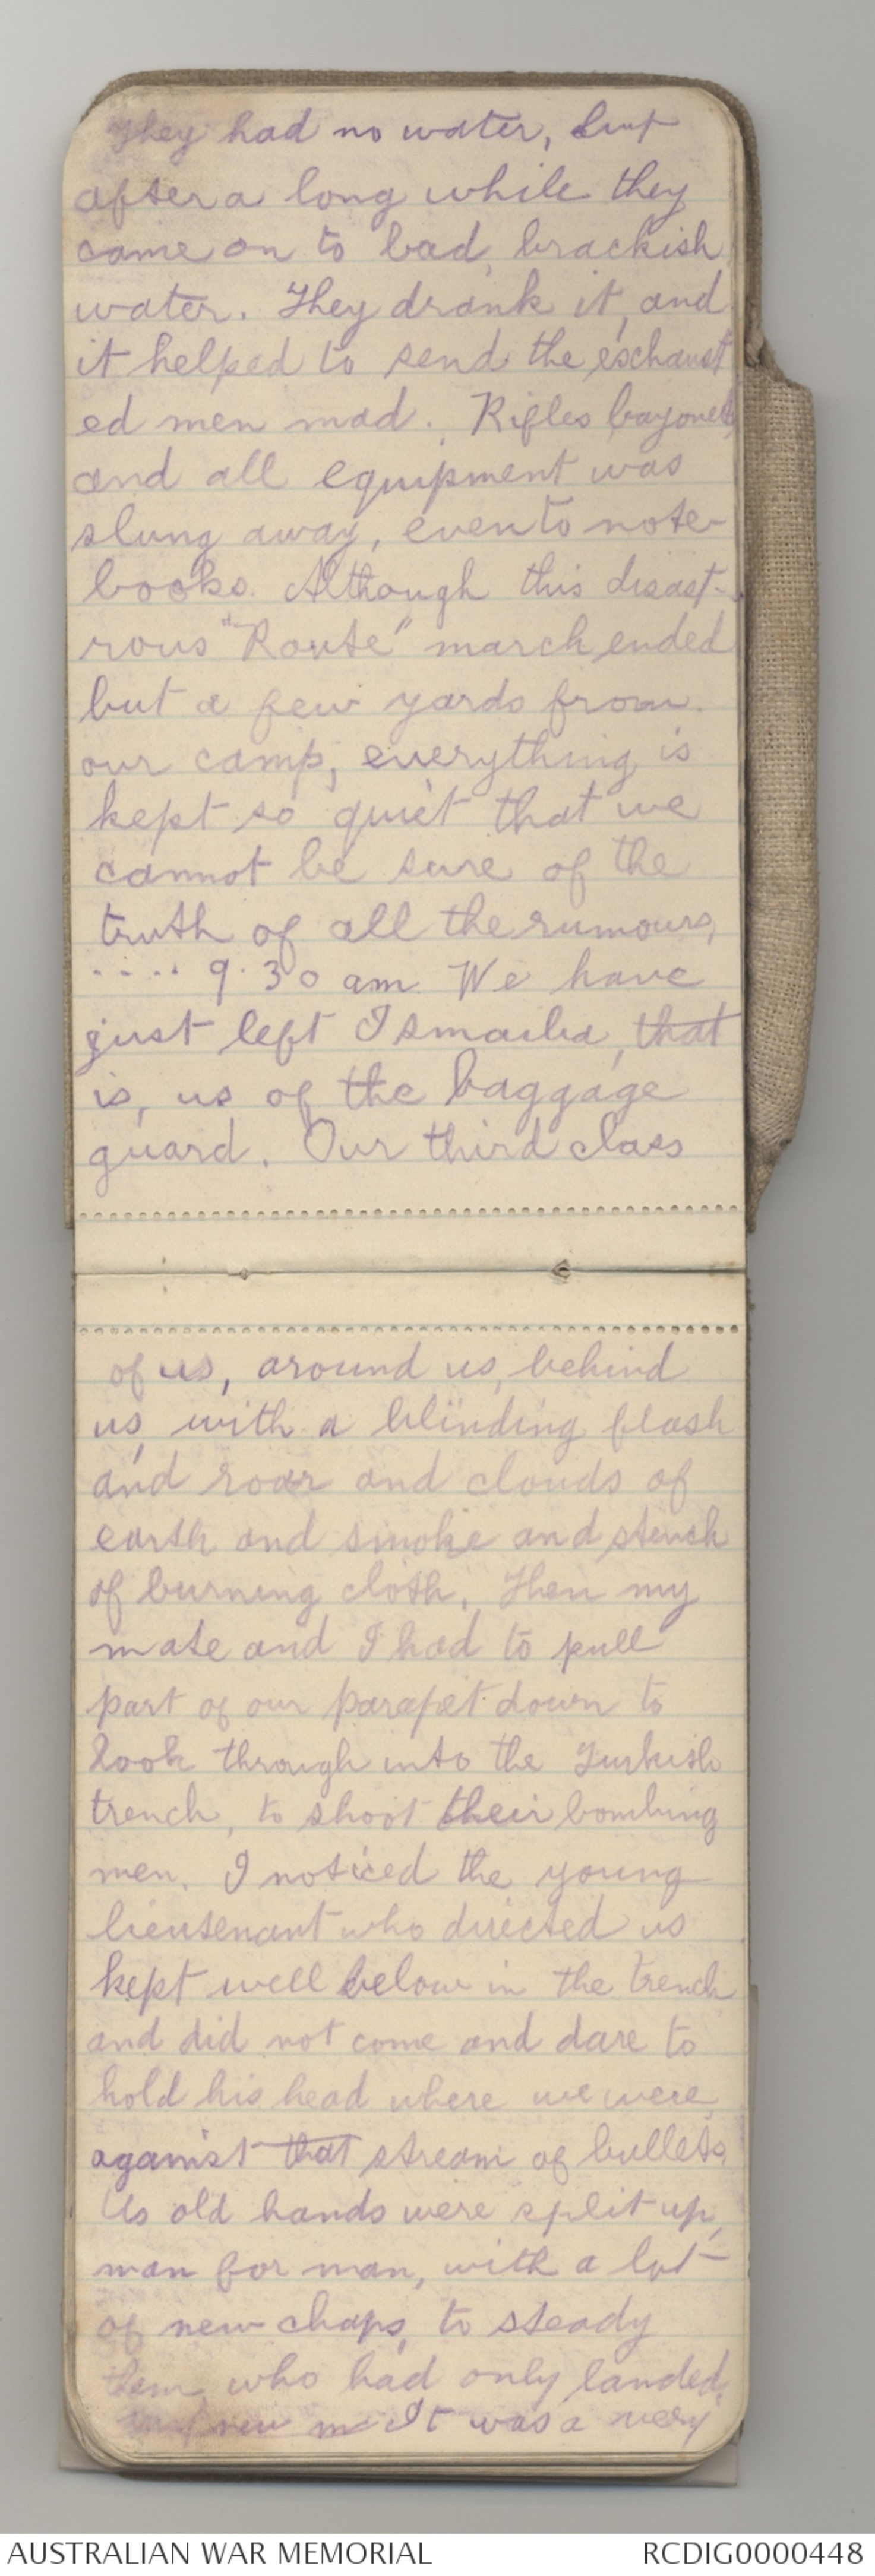 They had no water, but
after a long while they
came on to bad, brackish
water. They drank it, and
it helped to send the exhaust
ed men mad. Rifles bayonets,
and all equipment was
slung away, even to note-
books. Although this disast-
rous "Route" march ended
but a few yards from
our camp, everything is
kept so quiet that we
cannot be sure of the
truth of all the rumours,
..... 9.30 am We have
just left Ismailia, that
is, us of the baggage
guard. Our third class
of us, around us, behind
us, with a blinding flash
and roar and clouds of
earth and smoke and stench
of burning cloth. Then my
mate and I had to pull
part of our parapet down to
look through into the Turkish
trench, to shoot their bombing
men. I noticed the young
lieutenant who directed us
kept well below in the trench
and did not come and dare to
hold his head where we were,
against that stream of bullets
Us old hands were split up,
man for man, with a lot
of new chaps, to steady
them, who had only landed,
new m It was a very
AUSTRALIAN WAR MEMORIAL
RCDIG0000448